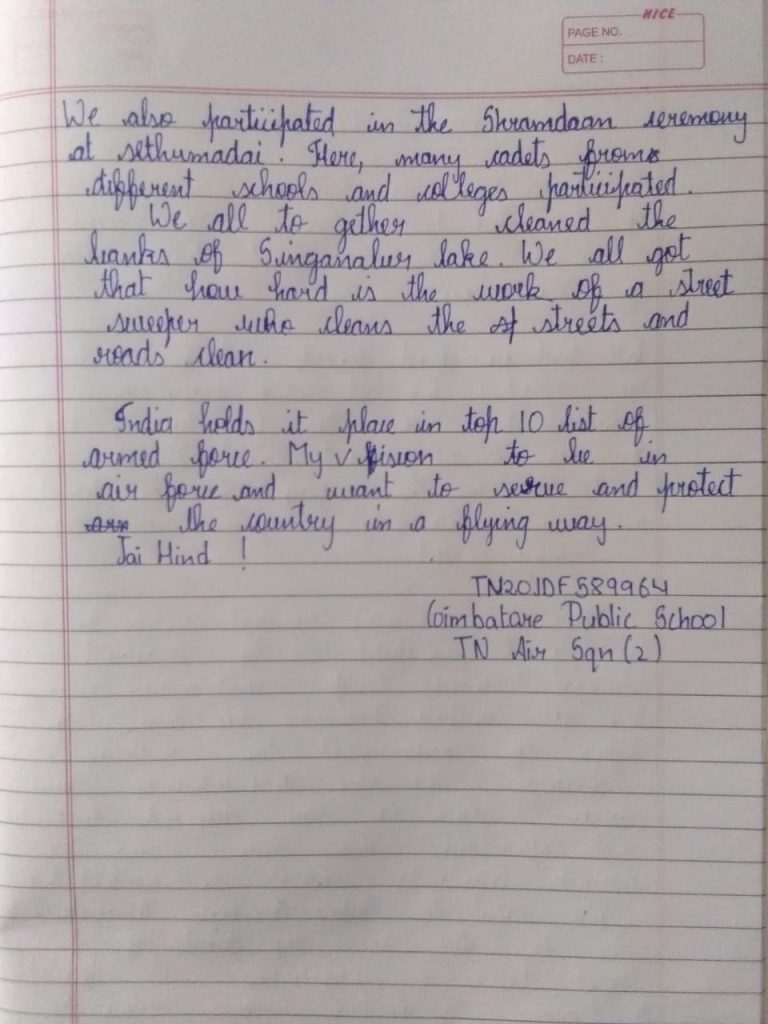 NICE
PAGE NO.
DATE :
We also participated in the Shramdaan ceremony
at sethumadai. Here, many cadets from
different schools and colleges participated.
We all to gether cleaned the
banks of Singanalur lake. We all got
that how hard is the work of a street
sweeper who cleans the streets and
roads clean.
India holds it place in top 10 list of
armed force. My vision to be in
air force and want to serve and protect
the country in a flying way.
Jai Hind !
TN20JDF589964
Coimbatare Public School
TN Air Sqn (2)